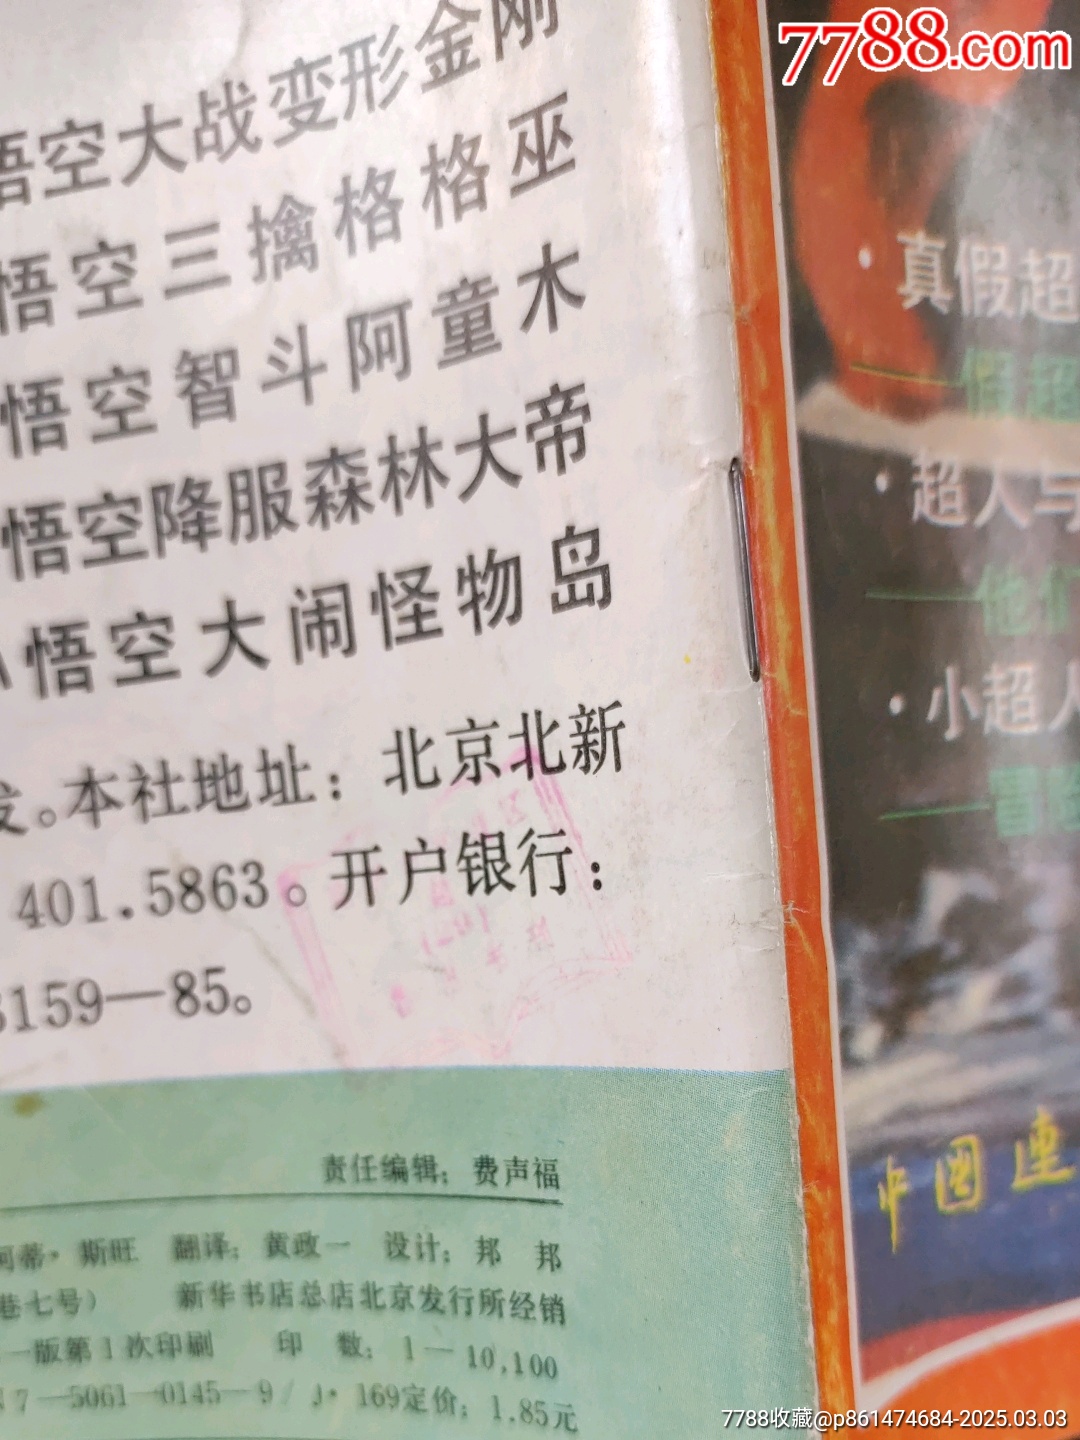 7788.com
悟空大战变形金刚
悟空三擒格格巫
悟空智斗阿童木
悟空降服森林大帝
小悟空大闹怪物岛
发。本社地址：北京北新
401.5863。开户银行：
3159—85。
责任编辑：费声福
阿蒂·斯旺 翻译：黄政一 设计：邦 邦
巷七号） 新华书店总店北京发行所经销
一版第1次印刷 印 数：1—10,100
7—5061—0145—9/J·169定价：1.85元
·真假超
——假超
·超人与
——他们
·小超人
——冒险
中国连
7788收藏@p861474684-2025.03.03